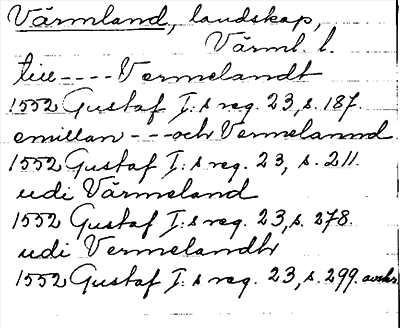 Värmland, landskap,
Värml. l.
till ---- Vermelandt
1552 Gustaf I:s reg. 23, s. 187.
emillan --- och Vermelannd
1552 Gustaf I:s reg. 23, s. 211.
udi Värmeland
1552 Gustaf I:s reg. 23, s. 278.
udi Vermelandh
1552 Gustaf I:s reg. 23, s. 299. avskr.